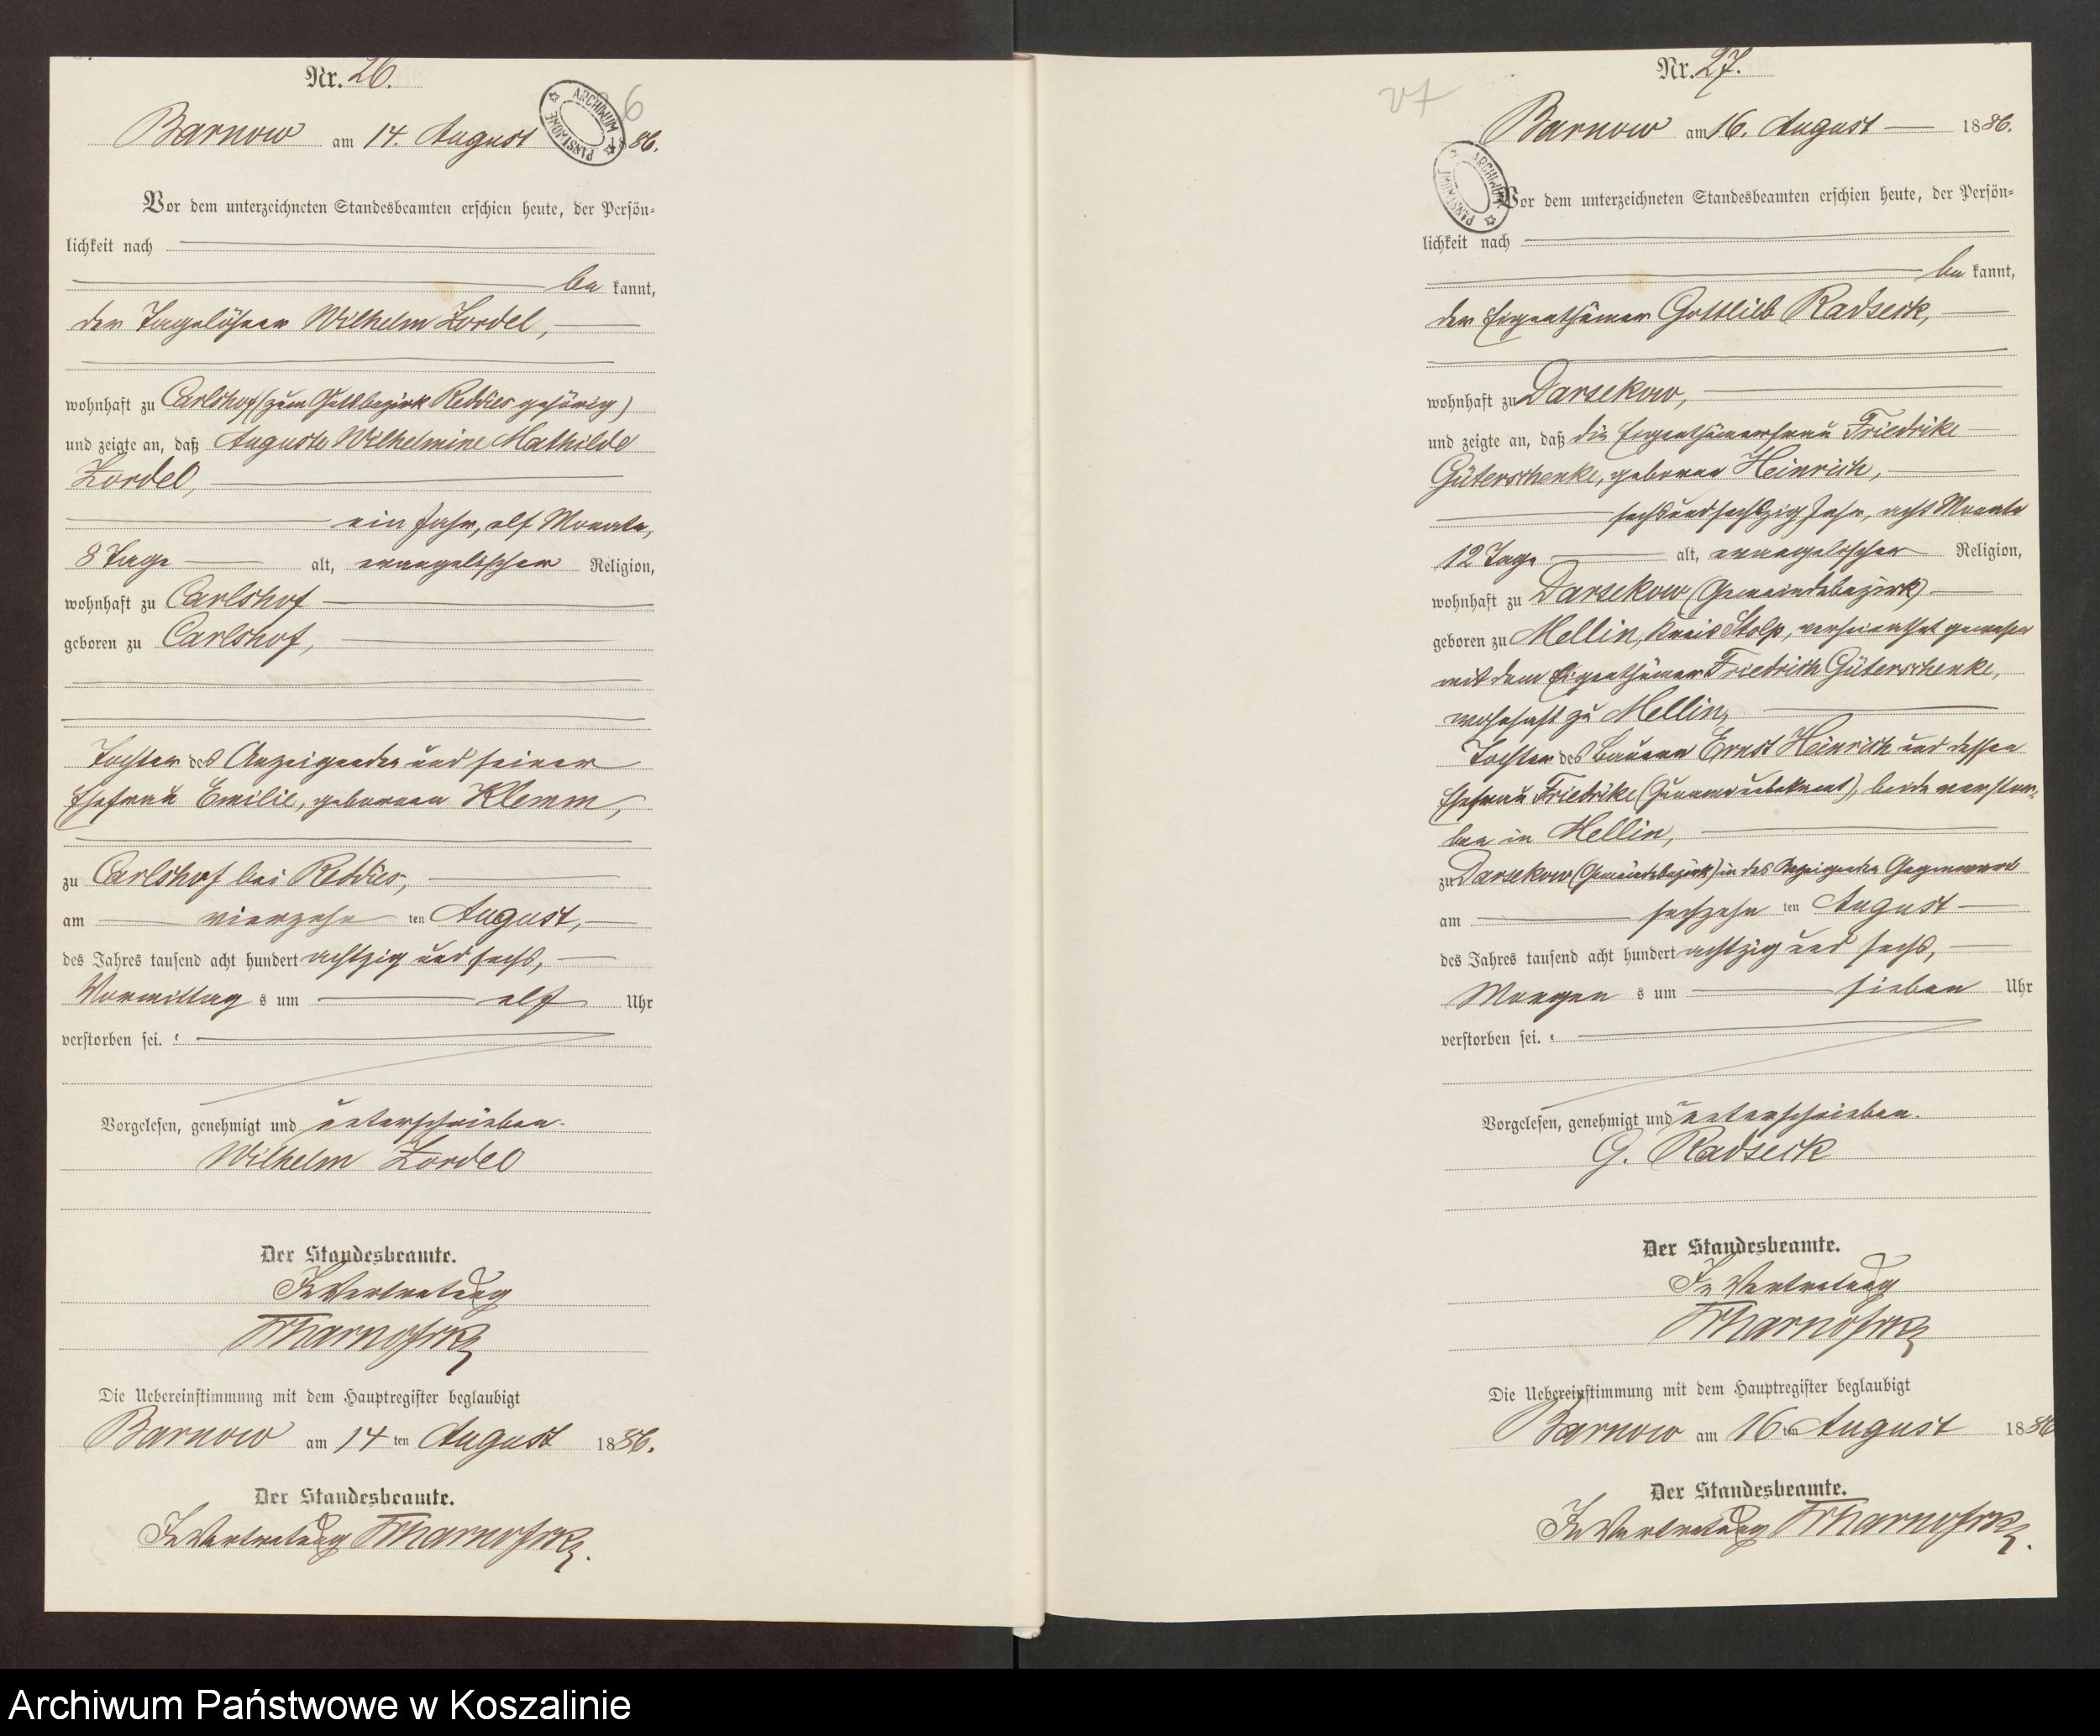 Nr. 26.
26
ARCHIWUM PAŃSTWOWE
Barnow am 14. August 86.
Vor dem unterzeichneten Standesbeamten erschien heute, der Persön-
lichkeit nach
be kannt,
der Tagelöhner Wilhelm Zordel,
wohnhaft zu Carlshof (zum Gutsbezirk Reddies gehörig)
und zeigte an, daß Auguste Wilhelmine Mathilde
Zordel,
ein Jahr, elf Monate,
8 Tage alt, evangelischer Religion,
wohnhaft zu Carlshof
geboren zu Carlshof,
Tochter des Anzeigenden und seiner
Ehefrau Emilie, geborenen Klemm,
zu Carlshof bei Reddies,
am vierzehn ten August,
des Jahres tausend acht hundert achtzig und sechs,
Vormittag s um elf Uhr
verstorben sei.
Vorgelesen, genehmigt und unterschrieben.
Wilhelm Zordel
Der Standesbeamte.
In Vertretung
Die Uebereinstimmung mit dem Hauptregister beglaubigt
Barnow am 14 ten August 1886.
Der Standesbeamte.
In Vertretung
Nr. 27.
27
ARCHIWUM PAŃSTWOWE
Barnow am 16. August 1886.
Vor dem unterzeichneten Standesbeamten erschien heute, der Persön-
lichkeit nach
be kannt,
der Eigenthümer Gottlieb Radseck,
wohnhaft zu Darsekow,
und zeigte an, daß die Eigenthümerfrau Friedrike
Güterschenke, geborene Heinrich,
sechsundsechszig Jahr, acht Monate
12 Tage alt, evangelischer Religion,
wohnhaft zu Darsekow (Gemeindebezirk)
geboren zu Mellin, Kreis Stolp, verheirathet gewesen
mit dem Eigenthümer Friedrich Güterschenke,
wohnhaft zu Mellin,
Tochter des Bauern Ernst Heinrich und dessen
Ehefrau Friedrike (Zuname unbekannt), beide verstor-
ben in Mellin,
zu Darsekow (Gemeindebezirk) in des Anzeigenden Gegenwart
am sechzehn ten August
des Jahres tausend acht hundert achtzig und sechs,
Morgen s um sieben Uhr
verstorben sei.
Vorgelesen, genehmigt und unterschrieben.
G. Radseck
Der Standesbeamte.
In Vertretung
Die Uebereinstimmung mit dem Hauptregister beglaubigt
Barnow am 16 ten August 1886
Der Standesbeamte.
In Vertretung
Archiwum Państwowe w Koszalinie